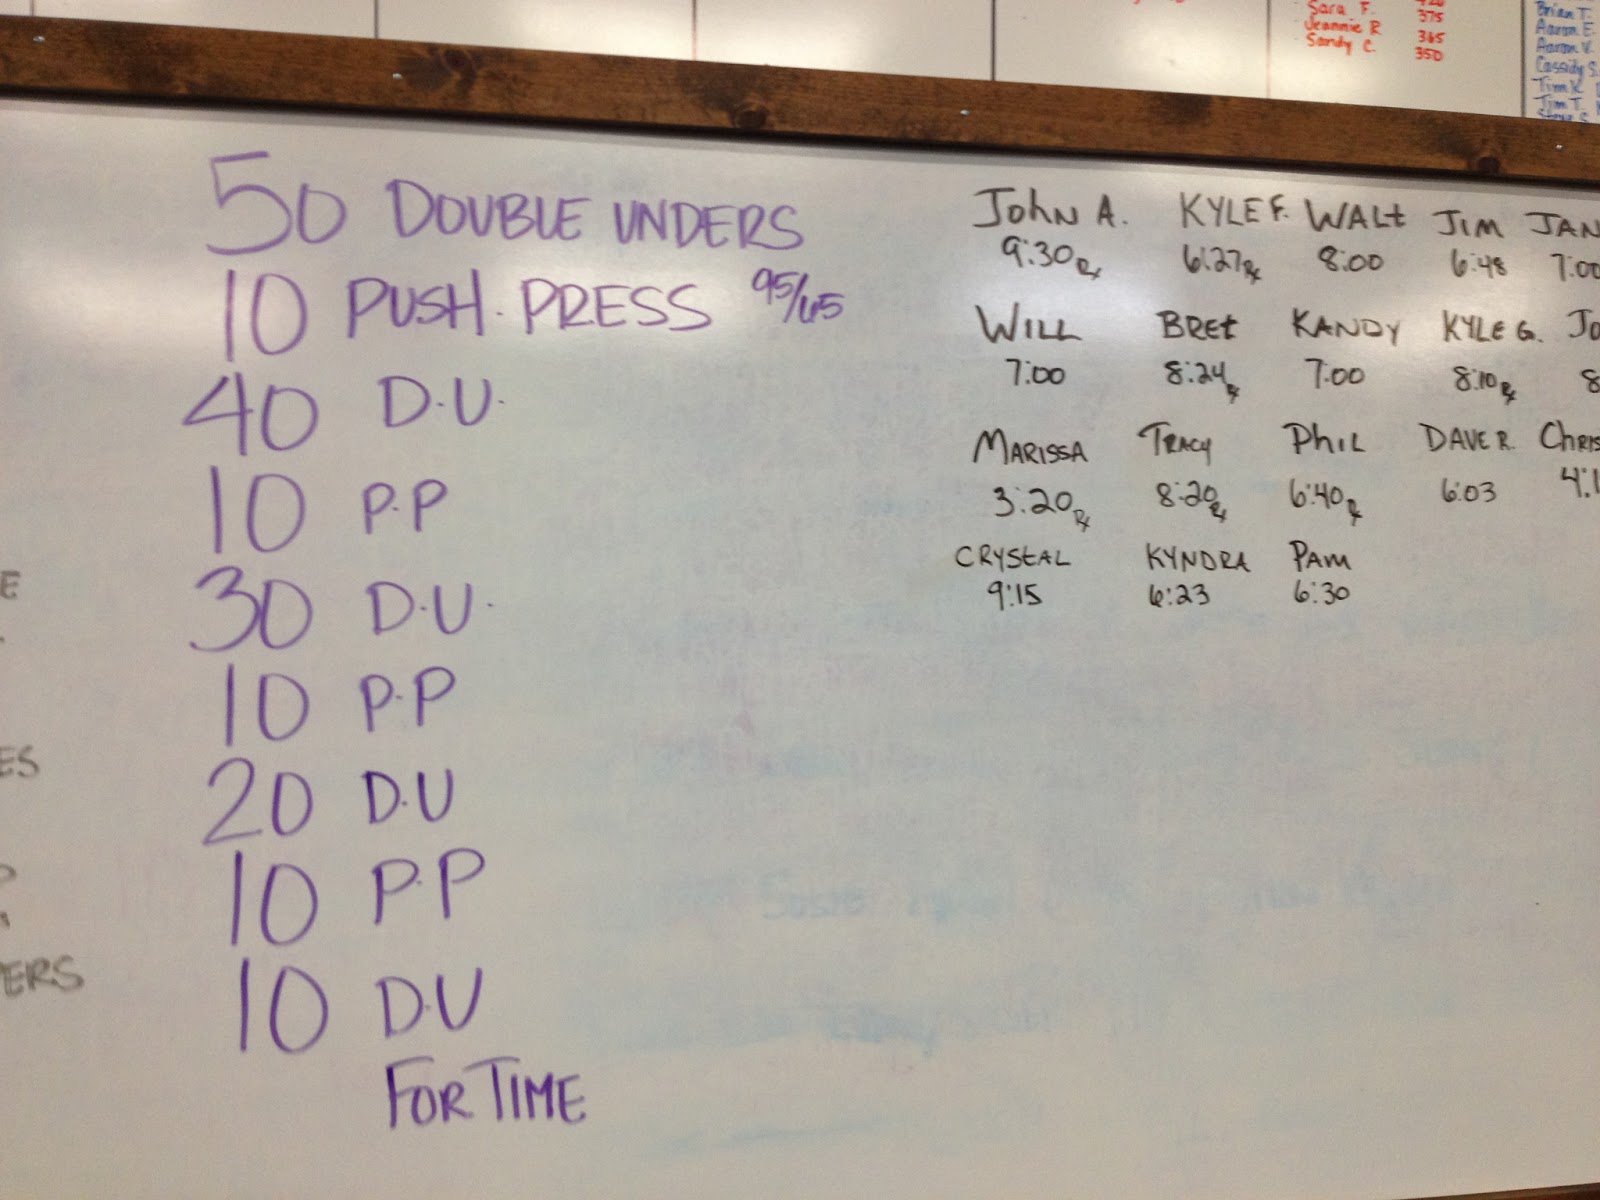 Sara F. 375
Jeannie R 365
Sandy C. 350
Brian T.
Aaron E.
Aaron V.
Cassidy S.
Tim K
Tim T.
50 DOUBLE UNDERS
10 PUSH PRESS 95/65
40 D.U.
10 P.P
30 D.U.
10 P.P
20 D.U
10 P.P
10 D.U
FOR TIME
JOHN A. KYLE F. WALt JIM JAN
9:30 Rx 6:27 Rx 8:00 6:48 7:00
WILL BREt KANDY KYLE G. Jo
7:00 8:24 Rx 7:00 8:10 Rx 8
MARISSA TRACY PHIL DAVE R. CHRIS
3:20 Rx 8:20 Rx 6:40 Rx 6:03 4:1
CRYStAL KYNDRA PAM
9:15 6:23 6:30
E
ES
ERS